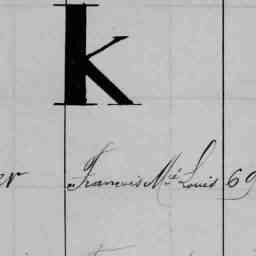 K
er François Mie Louis 69